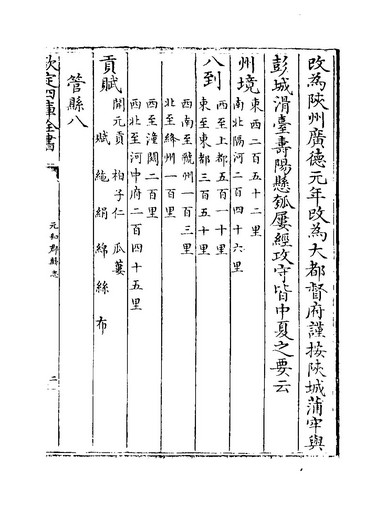 改為陝州廣德元年改為大都督府謹按陝城蒲牢與
彭城滑臺壽陽懸瓠屢經攻守皆中夏之要云
州境
東西二百五十二里
南北隔河二百四十六里
八到
西至上都五百一十里
東至東都三百五十里
西南至虢州一百三里
北至絳州一百里
西至潼關二百里
西北至河中府二百四十五里
貢賦
開元貢 柏子仁 瓜蔞
賦 絁 絹 綿 絲 布
管縣八
欽定四庫全書
元和郡縣志
二